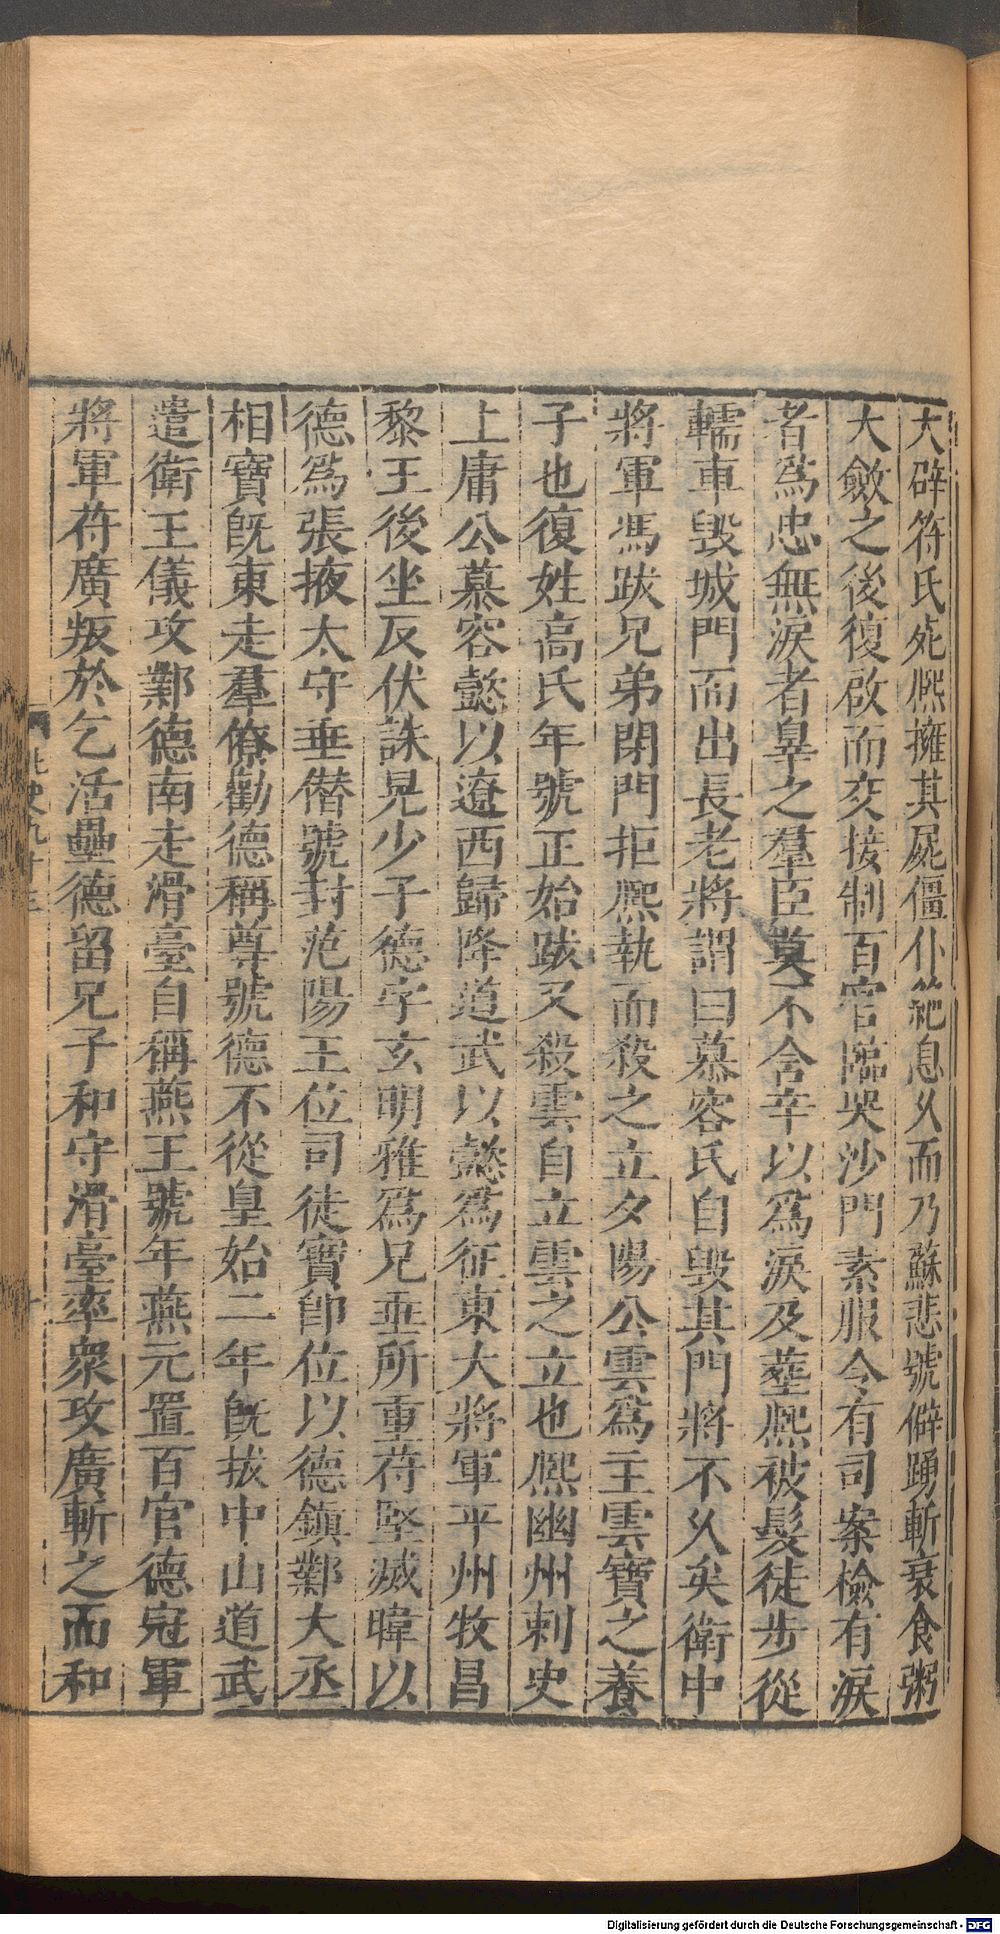 大辟符氏死熙擁其屍僵仆絕息久而乃蘇悲號擗踴斬衰食粥
大斂之後復啟而交接制百官臨哭沙門素服令有司案檢有淚
者爲忠無淚者辠之羣臣莫不含辛以爲淚及葬熙被髮徒步從
轜車毀城門而出長老將謂曰慕容氏自毀其門將不久矣衛中
將軍馮跋兄弟閉門拒熙執而殺之立夕陽公雲爲主雲寶之養
子也復姓高氏年號正始跋又殺雲自立雲之立也熙幽州刺史
上庸公慕容懿以遼西歸降道武以懿爲征東大將軍平州牧昌
黎王後坐反伏誅晃少子德字玄明雅爲兄垂所重苻堅滅暐以
德爲張掖太守垂僭號封范陽王位司徒寶即位以德鎮鄴大丞
相寶旣東走羣僚勸德稱尊號德不從皇始二年旣拔中山道武
遣衛王儀攻鄴德南走滑臺自稱燕王號年燕元置百官德冠軍
將軍苻廣叛於乞活壘德留兄子和守滑臺率衆攻廣斬之而和
北史九十三
Digitalisierung gefördert durch die Deutsche Forschungsgemeinschaft - DFG